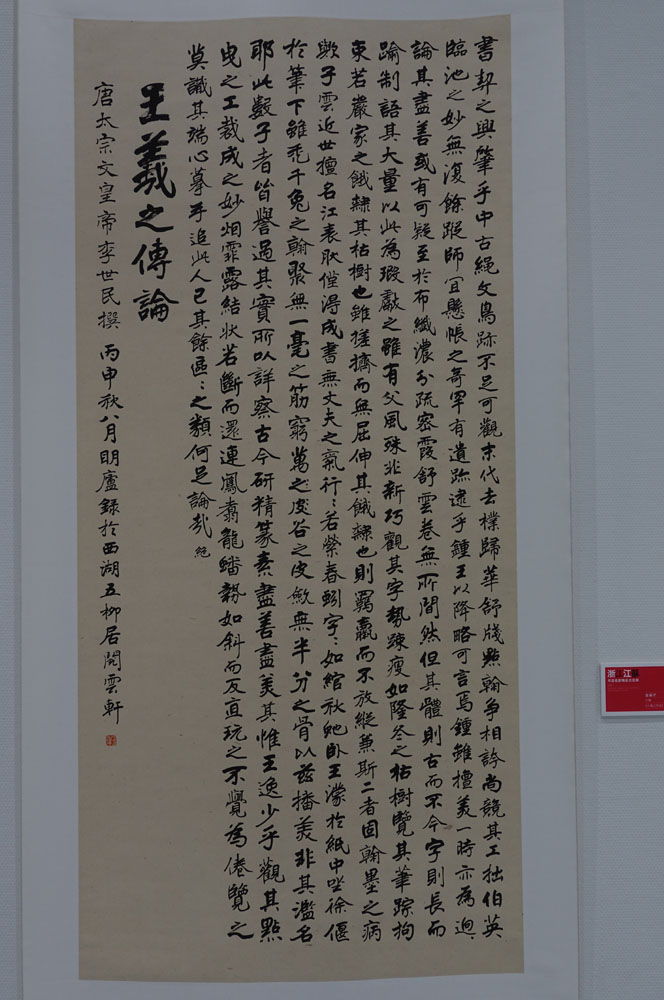 書契之興肇乎中古繩文鳥跡不足可觀末代去樸歸華舒牋點翰爭相誇尚競其工拙伯英
臨池之妙無復餘蹤師宜懸帳之奇罕有遺跡逮乎鍾王以降略可言焉鍾雖擅美一時亦為迥
論其盡善或有可疑至於布纖濃分疏密霞舒雲卷無所間然但其體則古而不今字則長而
踰制語其大量以此為瑕獻之雖有父風殊非新巧觀其字勢疎瘦如隆冬之枯樹覽其筆蹤拘
束若嚴家之餓隸其枯樹也雖槎擠而無屈伸其餓隸也則羈羸而不放縱兼斯二者固翰墨之病
歟子雲近世擅名江表狀僅得成書無丈夫之氣行〻若縈春蚓字〻如綰秋蛇臥王濛於紙中坐徐偃
於筆下雖禿千兔之翰聚無一毫之筋窮萬之皮谷之皮斂無半分之骨以茲播美非其濫名
耶此數子者皆譽過其實所以詳察古今研精篆素盡善盡美其惟王逸少乎觀其點
曳之工裁成之妙烟霏露結狀若斷而還連鳳翥龍蟠勢如斜而反直玩之不覺為倦覽之
莫識其端心摹手追此人已其餘區〻之類何足論哉 絕
王羲之傳論
唐太宗文皇帝李世民撰 丙申秋八月明廬錄於西湖五柳居閒雲軒
浙江